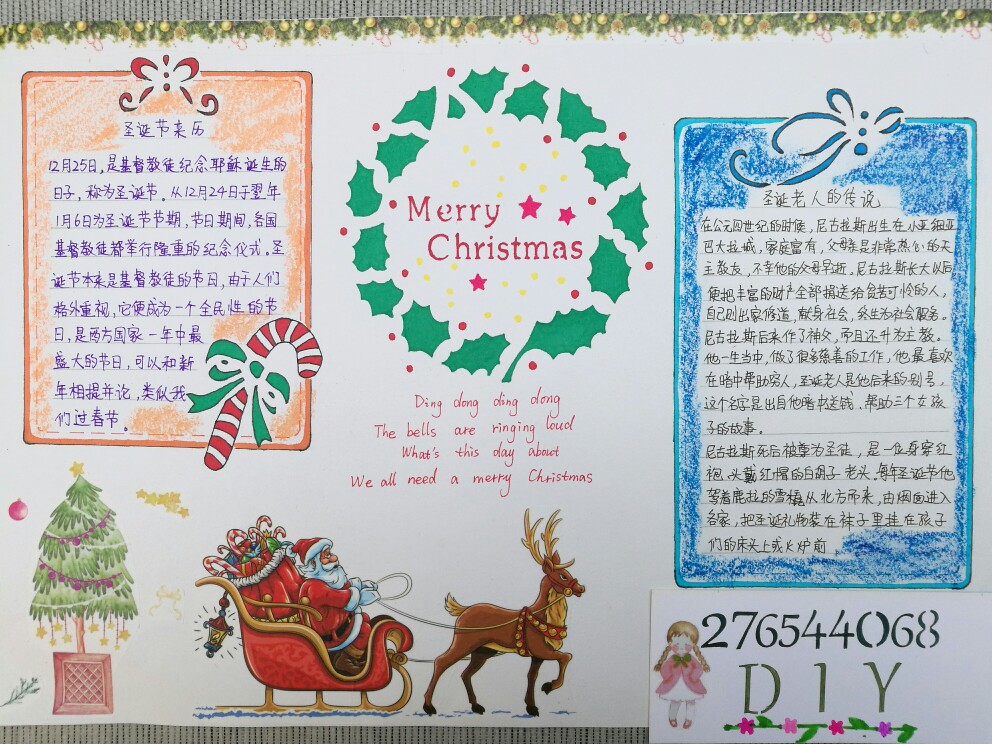 圣诞节来历
12月25日,是基督教徒纪念耶稣诞生的
日子,称为圣诞节。从12月24日于翌年
1月6日为圣诞节节期,节日期间,各国
基督教徒都举行隆重的纪念仪式。圣
诞节本来是基督教徒的节日,由于人们
格外重视,它便成为一个全民性的节
日,是西方国家一年中最
盛大的节日,可以和新
年相提并论,类似我
们过春节。
Merry
Christmas
Ding dong ding dong
The bells are ringing loud
What's this day about
We all need a merry Christmas
圣诞老人的传说
在公元四世纪的时候,尼古拉斯出生在小亚细亚
巴大拉城,家庭富有,父母亲是非常热心的天
主教友,不幸他的父母早逝。尼古拉斯长大以后
便把丰富的财产全部捐送给贫苦可怜的人,
自己则出家修道,献身社会,终生为社会服务。
尼古拉斯后来作了神父,而且还升为主教。
他一生当中,做了很多慈善的工作,他最喜欢
在暗中帮助穷人,圣诞老人是他后来的别号,
这个名字是出自他暗中送钱,帮助三个女孩
子的故事。
尼古拉斯死后被尊为圣徒,是一位身穿红
袍、头戴红帽的白胡子老头。每年圣诞节他
驾着鹿拉的雪橇从北方而来,由烟囱进入
各家,把圣诞礼物装在袜子里挂在孩子
们的床头上或火炉前
276544068
DIY